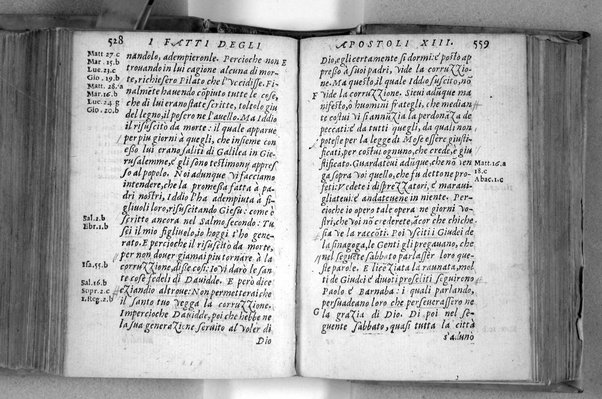 528
I FATTI DEGLI
Matt 27.c
Mar. 15.b
Luc. 23.c
Gio. 19.b
Matt. 28.a
Mar. 16.b
Luc. 24.g
Gio. 20.b
Sal. 2.b
Ebr. 1.b
Isa. 55.b
Sal. 16.b
Sopr. 2.c
1. Reg. 2.b
nandolo, adempieronle. Percioche non E
trouando in lui cagione alcuna di mor-
te, richiesero Pilato che l'vccidisse. Fi-
nalmẽte hauendo cõpiuto tutte le cose,
che di lui erano state scritte, toltolo giu
del legno, il posero ne l'auello. Ma Iddio
il risuscitò da morte: il quale apparue
per piu giorni à quegli, che insieme con
esso lui eran saliti di Galilea in Gie-
rusalemme, & gli sono testimony appres-
so al popolo. Noi adunque vi facciamo
intendere, che la promessa fatta à pa-
dri nostri, Iddio l'ha adempiuta à fi-
gliuoli loro, risuscitando Giesu: come è
scritto ancora nel Salmo secondo: Tu
sei il mio figliuolo, io hoggi t'ho gene-
rato. E percioche il risuscitò da morte,
per non douer giamai piu tornare à la
corruzzione, disse cosi: io vi darò le san-
te cose fedeli di Dauidde. E però dice
eziandio altroue: Non permetterai che
il santo tuo vegga la corruzzione.
Impercioche Dauidde, poi che hebbe ne
la sua generazione seruito al voler di
Dio
APOSTOLI XIII.
559
Dio, egli certamente si dormì: e posto ap
presso à suoi padri, vide la corruzzio-
ne. Ma questo, il quale Iddio suscitò, nõ
F vide la corruzzione. Sieui adũque ma
nifesto, ò huomini frategli, che median
te costui vi s'annũzia la perdonza de
peccati: e da tutti quegli, da quali non
poteste per la legge di Mose essere giusti
ficati, per costui ognuno, che crede, è giu
stificato. Guardateui adũque, che nõ ven
ga sopra voi quello, che fu detto ne pro-
feti: Vedete i disprezzatori, e maraui-
gliateui: e andateuene in niente. Per-
cioche io opero tale opera ne giorni vo-
stri, che voi nõ crederete, ácor che chiche
sia ve la raccõti. Poi vsciti i Giudei de
la sinagoga, le Genti gli pregauano, che
nel seguẽte sabbato parlassẽr loro que-
ste parole. E licẽziata la raunata, mol
ti de Giudei e diuoti proseliti seguirono
Paolo e Barnaba: i quali parlando,
persuadeano loro che perseuerassero ne
G la grazia di Dio. Di poi nel se-
guente sabbato, quasi tutta la città
s'adunò
Matt. 16.a
18.c
Abac. 1.c